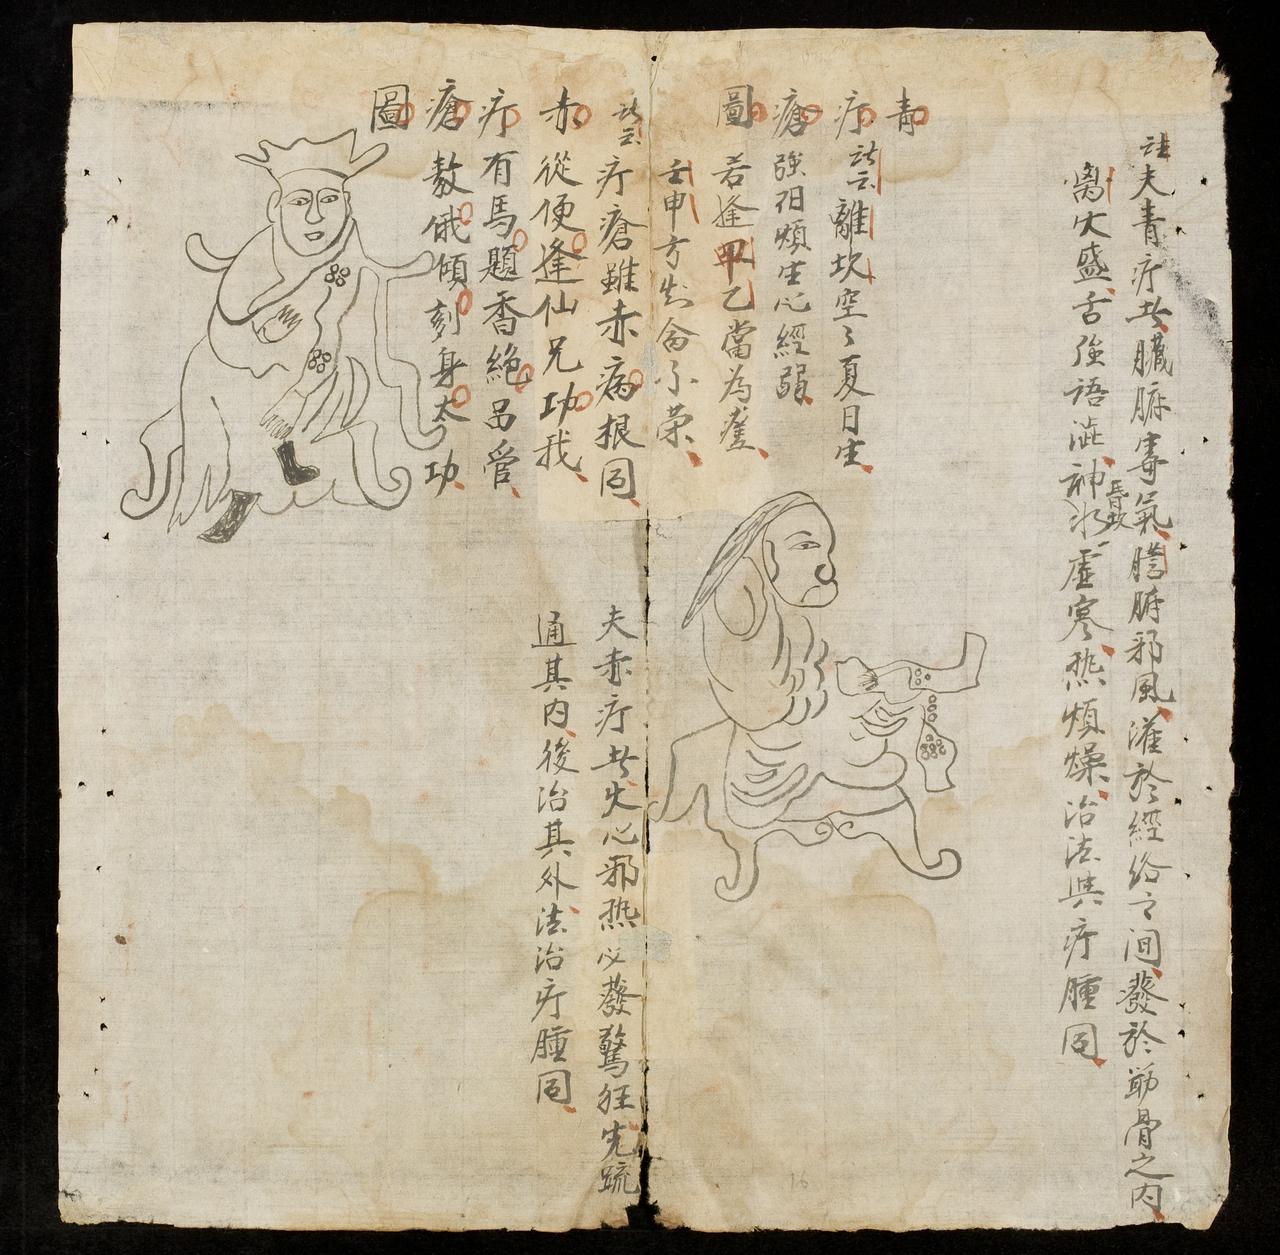 註夫青疔者臟腑毒氣臓腑邪風灌於經络之间發於筋骨之内
离火盛舌強語澁神昏坎水虛寒热煩燥治法與疔腫同
青
疔詩云離坎空々夏日生
瘡強阳煩生心經弱
圖若逢甲乙當為瘥
壬申方知命不荣
詩云疔瘡雖赤病根同
赤從便逢仙兄功我
疔有馬題香絶吕管
瘡敖俄傾刻身太功
圖
夫赤疔者火心邪热必發驚狂先䟽
通其内後治其外法治疔腫同
16